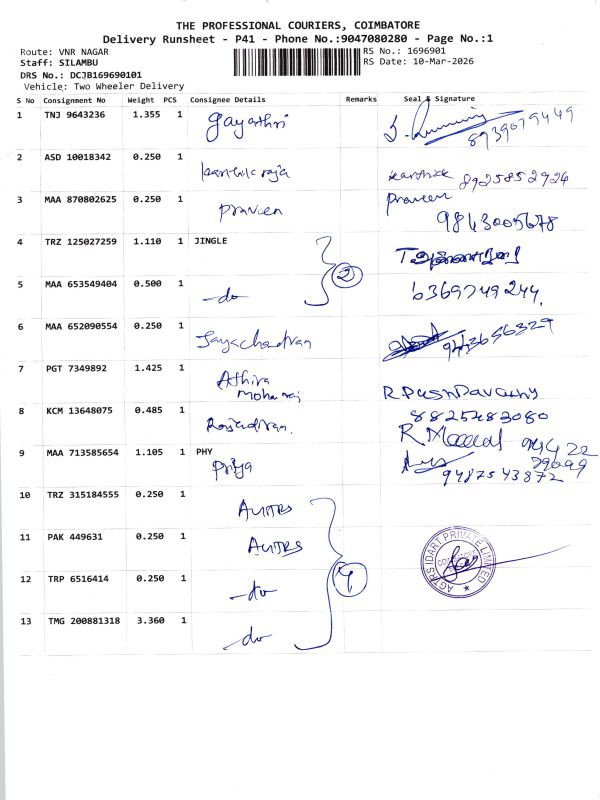 THE PROFESSIONAL COURIERS, COIMBATORE
Delivery Runsheet - P41 - Phone No.:9047080280 - Page No.:1
Route: VNR NAGAR RS No.: 1696901
Staff: SILAMBU RS Date: 10-Mar-2026
DRS No.: DCJB169690101
Vehicle: Two Wheeler Delivery
S No Consignment No Weight PCS Consignee Details Remarks Seal & Signature
1 TNJ 9643236 1.355 1 Gayathri
8939079449
2 ASD 10018342 0.250 1 karthic raja karthick 8925852924
3 MAA 870802625 0.250 1 Praveen Praveen
9843005678
4 TRZ 125027259 1.110 1 JINGLE
2
5 MAA 653549404 0.500 1 -do 6369749244.
6 MAA 652090554 0.250 1 Jayachandran 9443656329
7 PGT 7349892 1.425 1 Athira
Mohanraj R Pushpavathy
8 KCM 13648075 0.485 1 8825483080
Rajendran.
9 MAA 713585654 1.105 1 PHY
Priya 9487543872
10 TRZ 315184555 0.250 1 AGTRS
11 PAK 449631 0.250 1 AGTRS
AGTRS IDART PRIVATE LIMITED
12 TRP 6516414 0.250 1 -do 4
13 TMG 200881318 3.360 1 -do